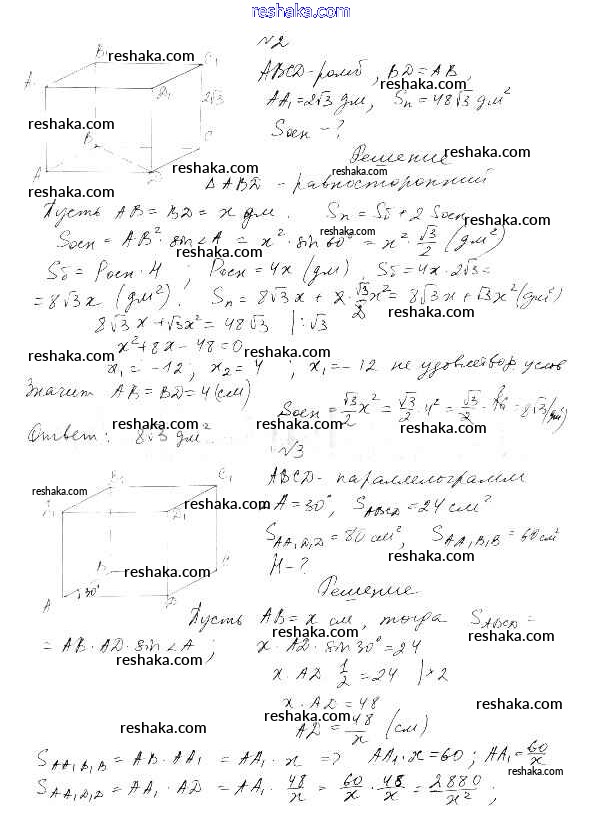 www.reshaka.com
№2
ABCD - ромб, BD = AB,
AA₁ = 2√3 дм, Sп = 48√3 дм²
Sосн - ?
Решение
△ ABD - равносторонний
Пусть AB = BD = x дм. Sп = Sб + 2 Sосн
Sосн = AB² · sin∠A = x² · sin 60° = x² · √3/2 (дм²)
Sб = Pосн · H ; Pосн = 4x (дм). Sб = 4x · 2√3 =
= 8√3x (дм²). Sп = 8√3x + 2 · √3/2 x² = 8√3x + √3x² (дм²)
8√3x + √3x² = 48√3 | : √3
x² + 8x - 48 = 0
x₁ = -12; x₂ = 4 ; x₁ = -12 не удовлетвор. услов
Значит AB = BD = 4 (см)
Sосн = √3/2 x² = √3/2 · 4² = √3/2 · 16 = 8√3 (дм²)
Ответ: 8√3 дм²
№3
ABCD - параллелограмм
∠A = 30°, S ABCD = 24 см²
S AA₁D₁D = 80 см², S AA₁B₁B = 60 см²
H - ?
Решение
Пусть AB = x см, тогда S ABCD =
= AB · AD · sin∠A ; x · AD · sin 30° = 24
x · AD 1/2 = 24 | ×2
x · AD = 48
AD = 48/x (см)
S AA₁B₁B = AB · AA₁ = AA₁ · x => AA₁ · x = 60; AA₁ = 60/x
S AA₁D₁D = AA₁ · AD = AA₁ · 48/x = 60/x · 48/x = 2880/x² ;